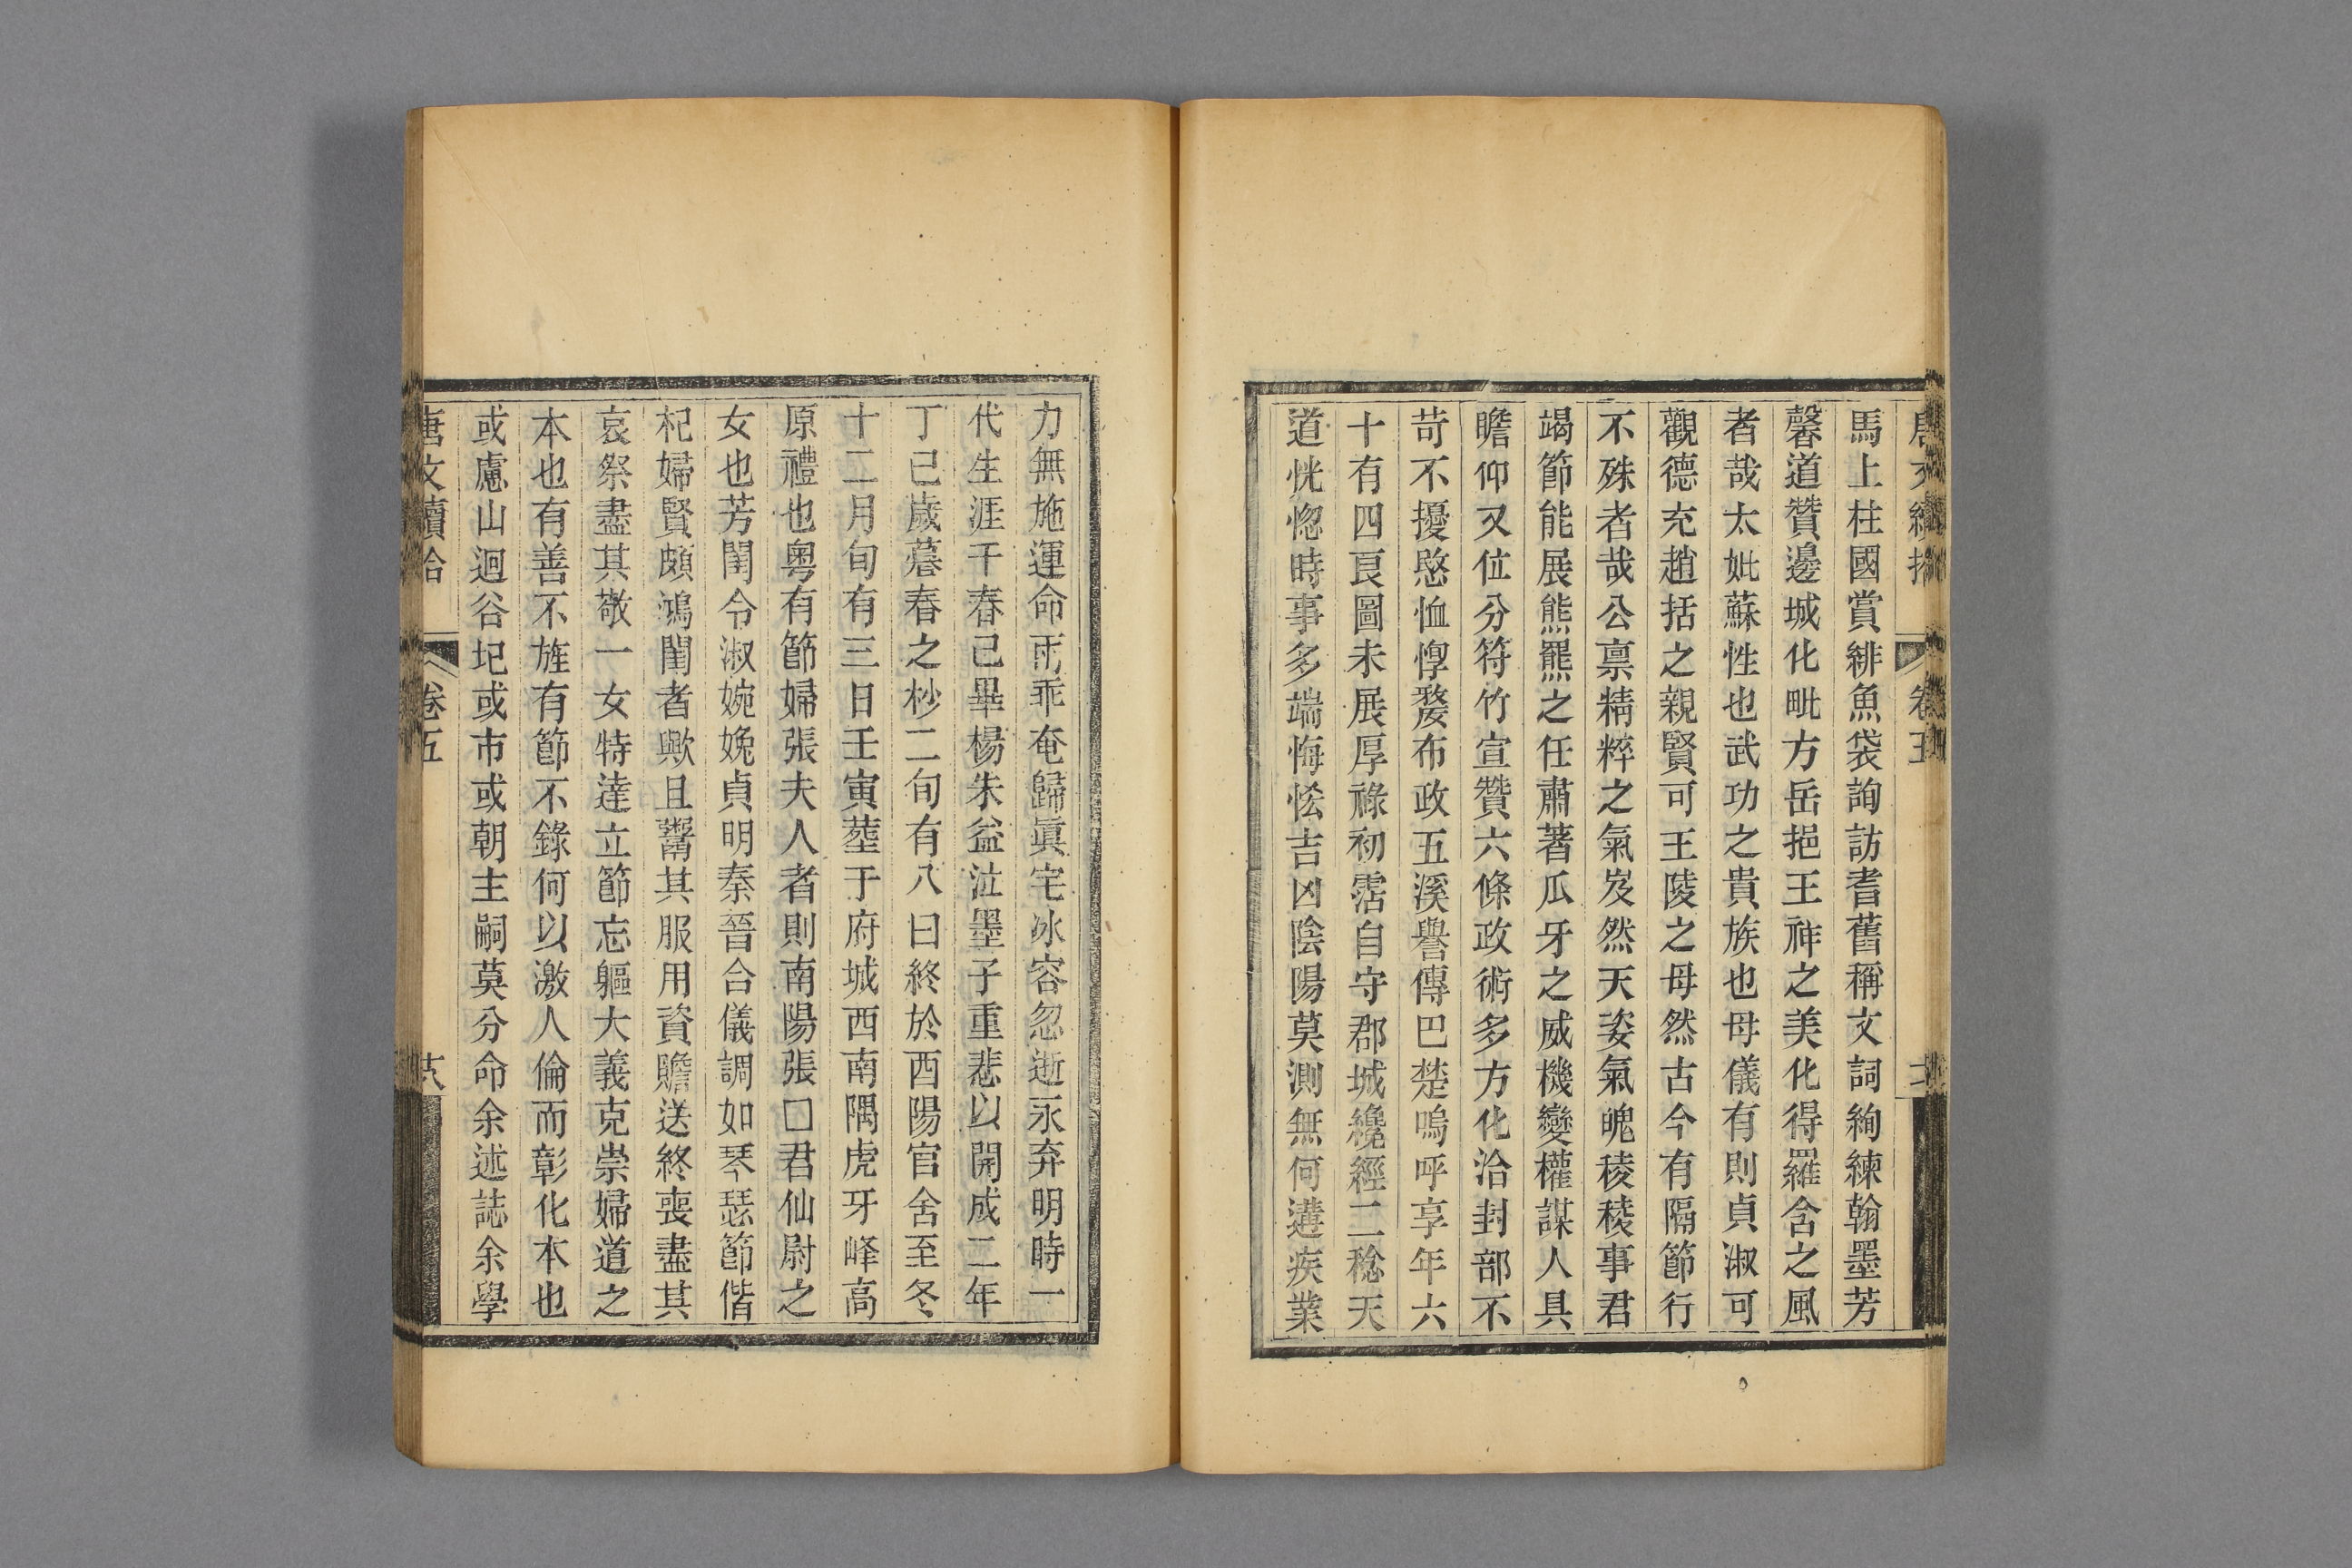 馬上柱國賞緋魚袋詢訪耆舊稱文詞絢練翰墨芳
馨道贊邊城化毗方岳挹王祥之美化得羅含之風
者哉太妣蘇性也武功之貴族也母儀有則貞淑可
觀德充趙括之親賢可王陵之母然古今有隔節行
不殊者哉公禀精粹之氣岌然天姿氣魄稜稜事君
竭節能展熊羆之任肅著瓜牙之威機變權謀人具
瞻仰又位分符竹宣贊六條政術多方化洽封部不
苛不擾愍恤惸嫠布政五溪譽傳巴楚嗚呼享年六
十有四亰圖未展厚祿初霑自守郡城纔經二稔天
道恍惚時事多端悔恡吉凶陰陽莫測無何遘疾業
力無施運命雨乖奄歸眞宅冰容忽逝永弃明時一
代生涯千春己畢楊朱益泣墨子重悲以開成二年
丁巳歲暮春之杪二旬有八日終於酉陽官舍至冬
十二月旬有三日壬寅塟于府城西南隅虎牙峰高
原禮也粤有節婦張夫人者則南陽張□君仙尉之
女也芳閨令淑婉娩貞明秦晉合儀調如琴瑟節偕
杞婦賢頗鴻閨者歟且鬻其服用資贍送終喪盡其
哀祭盡其敬一女特達立節忘軀大義克崇婦道之
本也有善不旌有節不錄何以激人倫而彰化本也
或慮山迴谷圮或市或朝主嗣莫分命余述誌余學
唐文續拾
卷五